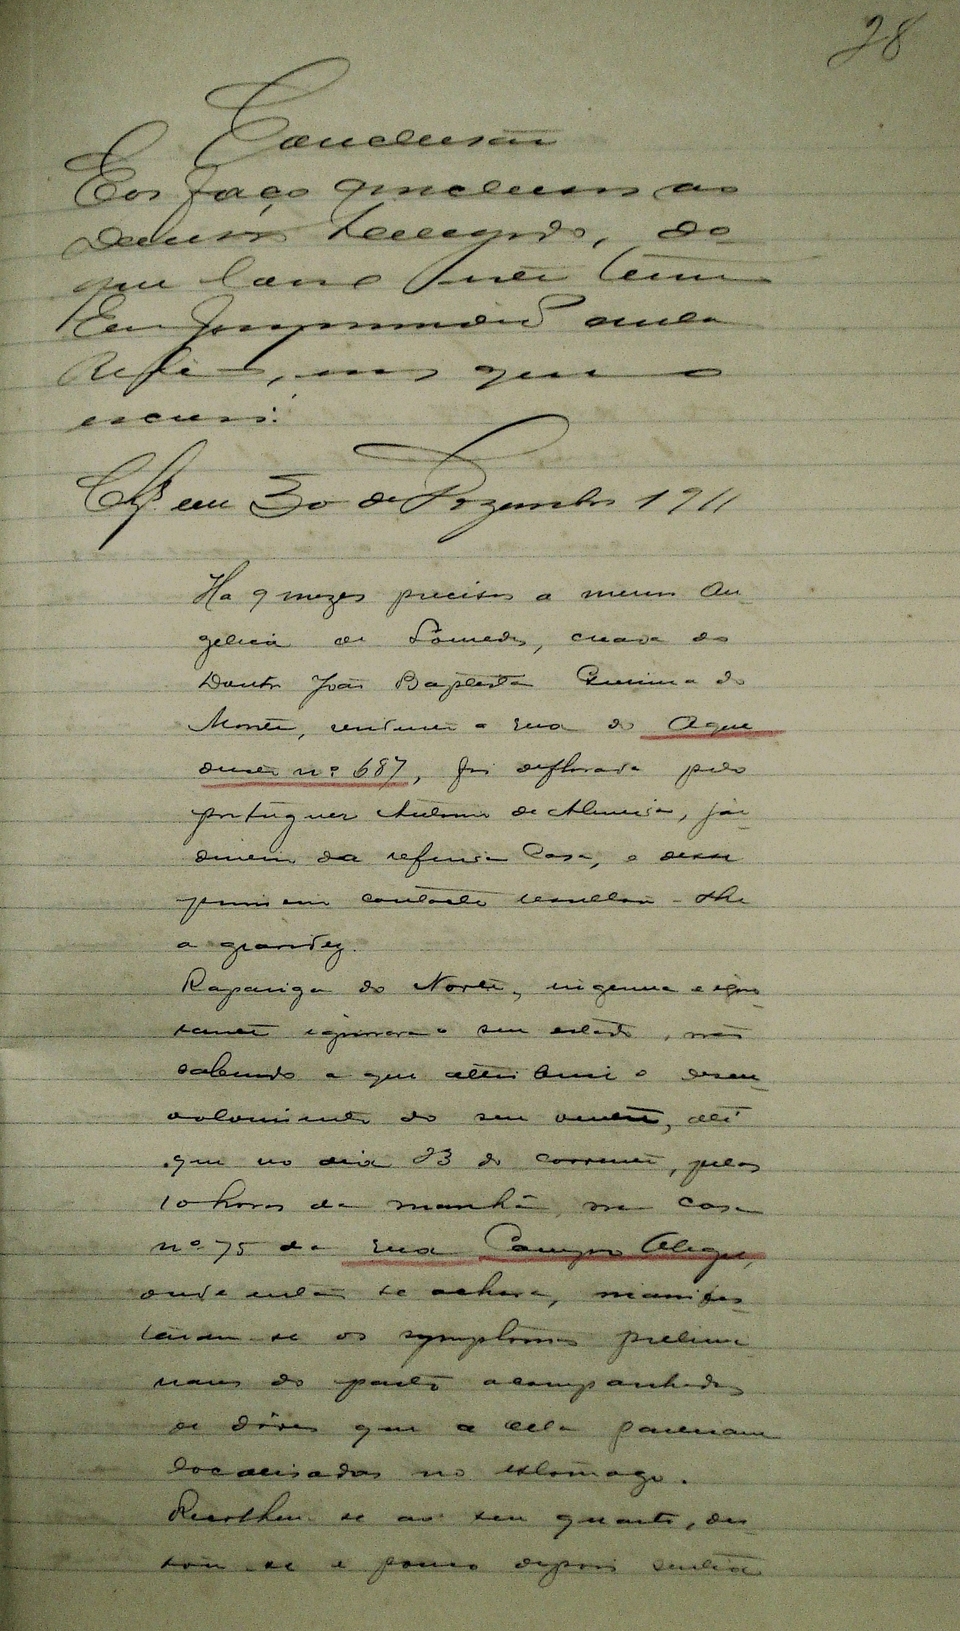 28
Conclusão
Eos faço conclusos ao
Delegado, do
que lavro este termo
Eu
que o
escrevi.
Cls. em 30 de Dezembro 1911
Ha 9 mezes precisos a menor An-
gelica de, creada do
Doutor João Baptista do
Monte, residente a rua do Aque
ducto nº 687, foi deflorada pelo
portuguez Antonio de Almeida, jar-
dineiro da referida Casa, e desse
primeiro contacto resultou-lhe
a gravidez.
Rapariga do Norte, ingenua e igno
rante ignorava o seu estado, não
sabendo a que attribuir o desen-
volvimento do seu ventre, até
que no dia 23 do corrente, pelas
10 horas da manhã, na casa
nº 75 da rua Campo Alegre,
onde então se achava, manifes-
taram-se os symptomas prelimi-
nares do parto acompanhados
de dôres que a ella pareciam
localisadas no estomago.
Recolheu-se ao seu quarto, dei-
tou-se e pouco depois sentia